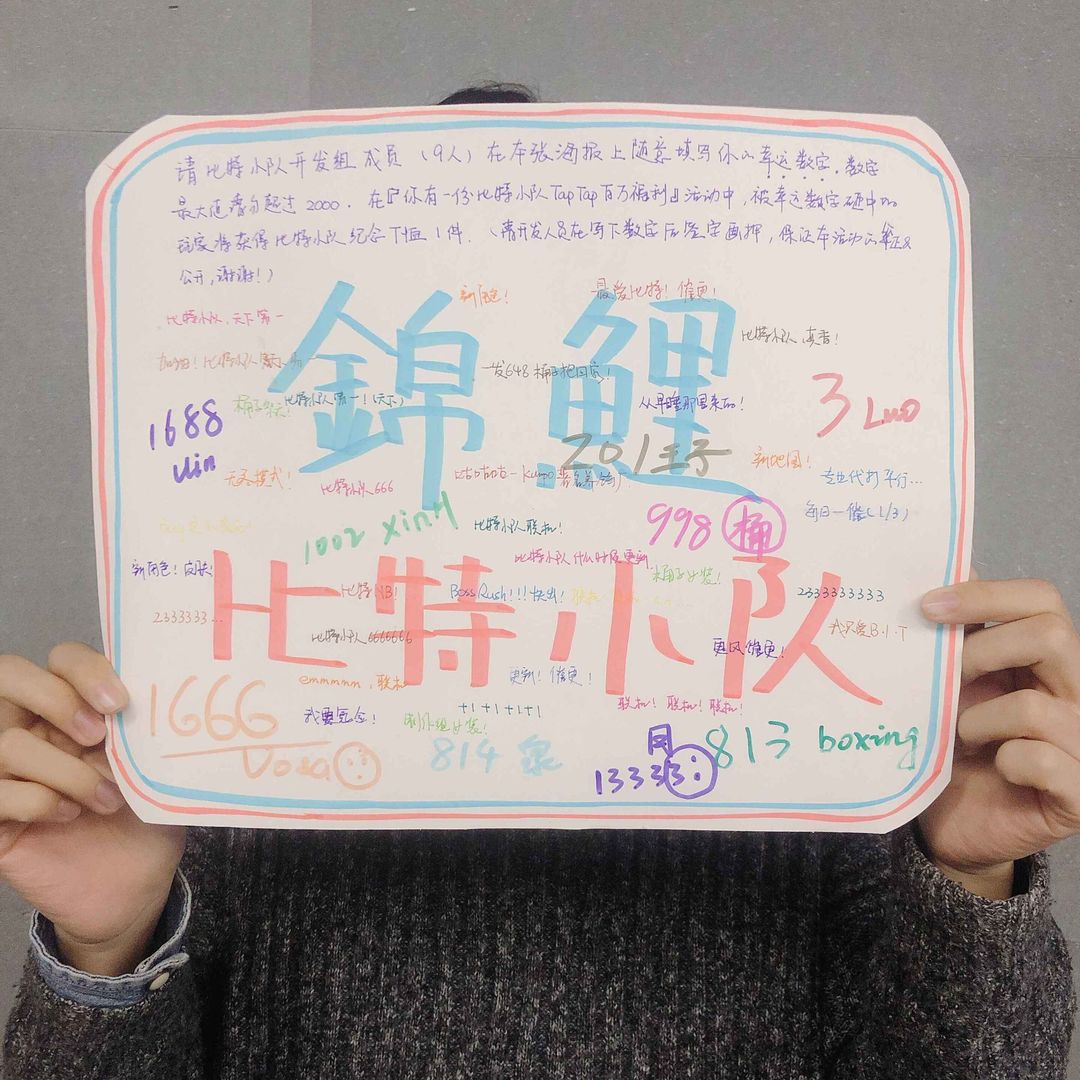 请比特小队开发组成员（9人）在本张海报上随意填写你的幸运数字，数字
最大值请勿超过2000．在『你有一份比特小队TapTap百万福利』活动中，被幸运数字砸中的
玩家将获得比特小队纪念T恤1件．（请开发人员在写下数字后签字画押，保证本活动公正&
公开，谢谢！）
錦鯉
新角色！
最爱比特！催更！
比特小队，天下第一
比特小队真香！
加油！比特小队
一发648桶子把回家！
比特小队第一！（天下）
3 Luo
1688
Uin
201王子
无尽模式！
比特小队666
新地图！
每日一催（1/3）
1002 xinH
比特小队联机！
998 桶
比特小队什么时候更新
新角色！皮肤！
比特小队
比特NB！
BossRush！！！快出！
桶子女装！
2333333333
2333333…
比特小队6666666
我只爱B.I.T
emmmmm，联机
更新！催更！
1666
Dosa
我要氪金！
制作组女装！
+1 +1 +1 +1
联机！联机！联机！
814 泉
13333
813 boxing